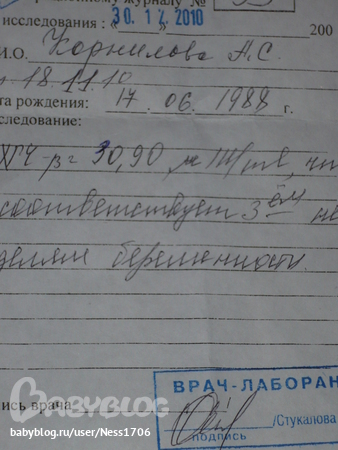 регистрационному журналу № 
исследования : 30. 12. 2010 200
И.О. Корнилова А.С.
18.11.10
та рождения: 17 . 06 . 1988 г.
следование:
ХГЧ β = 30,90 м МЕ/мл, что
соответствует 3ём не
делям беременности.
BABYBLOG
ВРАЧ-ЛАБОРАН
пись врача /Стукалова
подпись
babyblog.ru/user/Ness1706